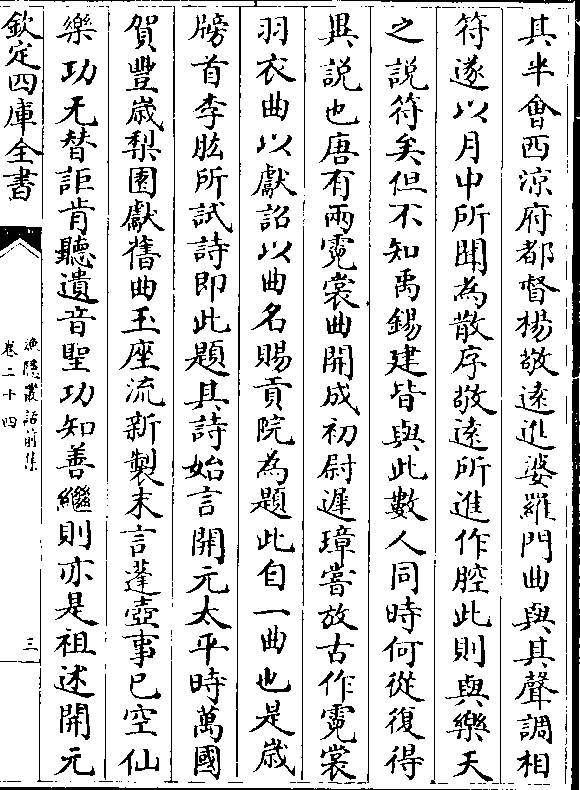 其半會西涼府都督楊敬遠進婆羅門曲與其聲調相
符遂以月中所聞為散序敬遠所進作腔此則與樂天
之説符矣但不知禹錫建皆與此數人同時何從復得
異説也唐有兩霓裳曲開成初尉遲璋嘗放古作霓裳
羽衣曲以獻詔以曲名賜貢院為題此自一曲也是歳
牓首李肱所試詩即此題其詩始言開元太平時萬國
賀豐歳梨園獻舊曲玉座流新製末言蓬壺事已空仙
樂功无替詎肯聽遺音聖功知善繼則亦是祖述開元
欽定四庫全書
漁隱叢話前集
卷二十四
三